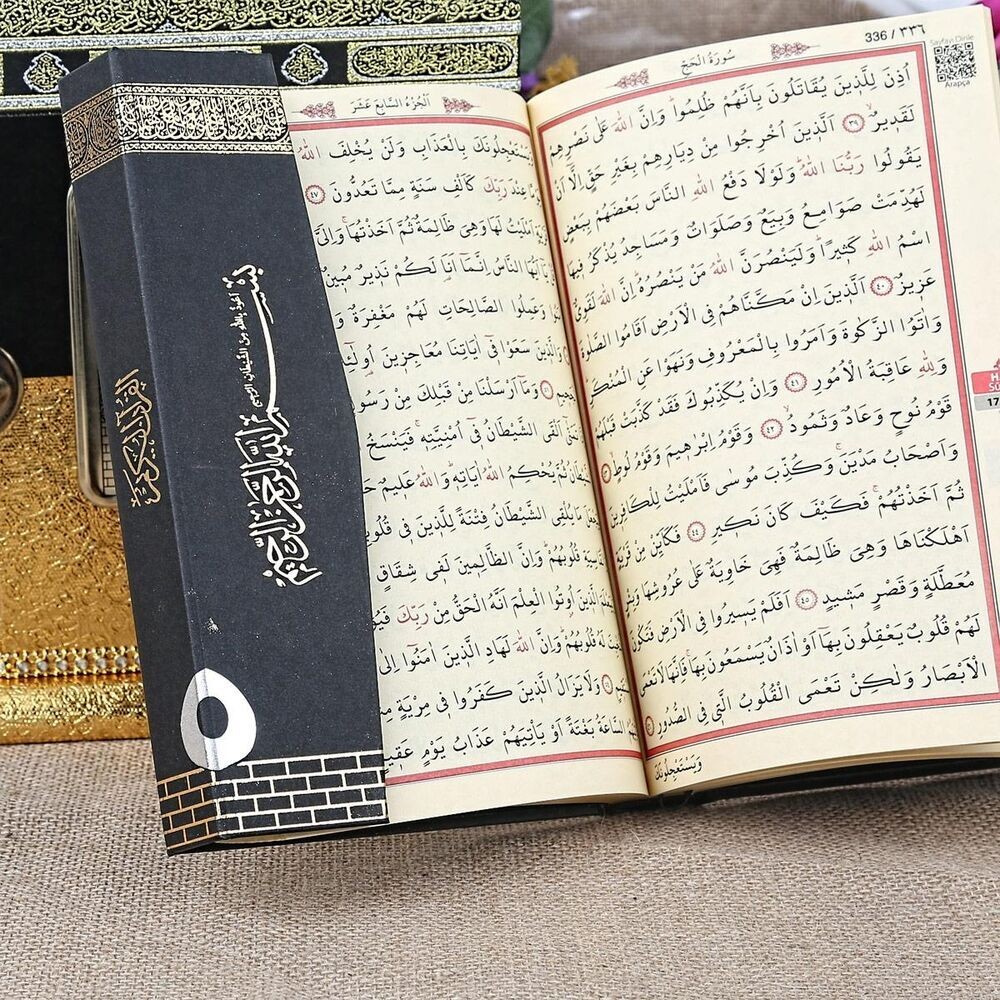 336 / ٣٣٦
سُورَةُ الْحَجِّ
Sayfayı Dinle
Arapça
اُذِنَ لِلَّذٖينَ يُقَاتَلُونَ بِاَنَّهُمْ ظُلِمُواؕ وَاِنَّ اللّٰهَ عَلٰى نَصْرِهِمْ
لَقَدٖيرٌۙ ٣٩ اَلَّذٖينَ اُخْرِجُوا مِنْ دِيَارِهِمْ بِغَيْرِ حَقٍّ اِلَّٓا اَنْ
يَقُولُوا رَبُّنَا اللّٰهُؕ وَلَوْلَا دَفْعُ اللّٰهِ النَّاسَ بَعْضَهُمْ بِبَعْضٍ
لَهُدِّمَتْ صَوَامِعُ وَبِيَعٌ وَصَلَوَاتٌ وَمَسَاجِدُ يُذْكَرُ فٖيهَا
اسْمُ اللّٰهِ كَثٖيراًؕ وَلَيَنْصُرَنَّ اللّٰهُ مَنْ يَنْصُرُهُؕ اِنَّ اللّٰهَ لَقَوِيٌّ
عَزٖيزٌ ٤٠ اَلَّذٖينَ اِنْ مَكَّنَّاهُمْ فِي الْاَرْضِ اَقَامُوا الصَّلٰوةَ
وَاٰتَوُا الزَّكٰوةَ وَاَمَرُوا بِالْمَعْرُوفِ وَنَهَوْا عَنِ الْمُنْكَرِؕ
وَلِلّٰهِ عَاقِبَةُ الْاُمُورِ ٤١ وَاِنْ يُكَذِّبُوكَ فَقَدْ كَذَّبَتْ قَبْلَهُمْ
قَوْمُ نُوحٍ وَعَادٌ وَثَمُودُۙ ٤٢ وَقَوْمُ اِبْرٰهٖيمَ وَقَوْمُ لُوطٍۙ ٤٣
وَاَصْحَابُ مَدْيَنَۚ وَكُذِّبَ مُوسٰى فَاَمْلَيْتُ لِلْكَافِرٖينَ
ثُمَّ اَخَذْتُهُمْۚ فَكَيْفَ كَانَ نَكٖيرِ ٤٤ فَكَاَيِّنْ مِنْ قَرْيَةٍ
اَهْلَكْنَاهَا وَهِيَ ظَالِمَةٌ فَهِيَ خَاوِيَةٌ عَلٰى عُرُوشِهَا وَبِئْرٍ
مُعَطَّلَةٍ وَقَصْرٍ مَشٖيدٍ ٤٥ اَفَلَمْ يَسٖيرُوا فِي الْاَرْضِ فَتَكُونَ
لَهُمْ قُلُوبٌ يَعْقِلُونَ بِهَٓا اَوْ اٰذَانٌ يَسْمَعُونَ بِهَاۚ فَاِنَّهَا لَا تَعْمَى
الْاَبْصَارُ وَلٰكِنْ تَعْمَى الْقُلُوبُ الَّتٖي فِي الصُّدُورِ ٤٦
وَيَسْتَعْجِلُونَكَ
17
اَلْجُزْءُ السَّابِعَ عَشَرَ
وَيَسْتَعْجِلُونَكَ بِالْعَذَابِ وَلَنْ يُخْلِفَ اللّٰهُ
عِنْدَ رَبِّكَ كَاَلْفِ سَنَةٍ مِمَّا تَعُدُّونَ ٤٧
اَمْلَيْتُ لَهَا وَهِيَ ظَالِمَةٌ ثُمَّ اَخَذْتُهَاۚ وَاِلَيَّ
يَٓا اَيُّهَا النَّاسُ اِنَّمَٓا اَنَا لَكُمْ نَذٖيرٌ مُبٖينٌ
وَعَمِلُوا الصَّالِحَاتِ لَهُمْ مَغْفِرَةٌ
وَالَّذٖينَ سَعَوْا فٖٓي اٰيَاتِنَا مُعَاجِزٖينَ
وَمَٓا اَرْسَلْنَا مِنْ قَبْلِكَ مِنْ
اَلْقَى الشَّيْطَانُ فٖٓي اُمْنِيَّتِهٖۚ فَيَنْسَخُ
ثُمَّ يُحْكِمُ اللّٰهُ اٰيَاتِهٖؕ وَاللّٰهُ عَلٖيمٌ
مَا يُلْقِي الشَّيْطَانُ فِتْنَةً لِلَّذٖينَ فٖي
قُلُوبُهُمْؕ وَاِنَّ الظَّالِمٖينَ لَفٖي شِقَاقٍ
الَّذٖينَ اُو۫تُوا الْعِلْمَ اَنَّهُ الْحَقُّ مِنْ رَبِّكَ
لَهُ قُلُوبُهُمْؕ وَاِنَّ اللّٰهَ لَهَادِ الَّذٖينَ اٰمَنُٓوا اِلٰى
وَلَا يَزَالُ الَّذٖينَ كَفَرُوا فٖي مِرْيَةٍ
السَّاعَةُ بَغْتَةً اَوْ يَأْتِيَهُمْ عَذَابُ يَوْمٍ عَقٖيمٍ
القرآن الكريم
اعوذ بالله من الشيطان الرجيم
بسم الله الرحمن الرحيم